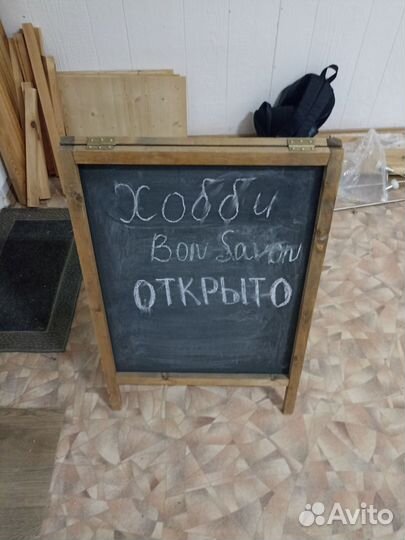 Хобби
Bon Savon
ОТКРЫТО
Avito